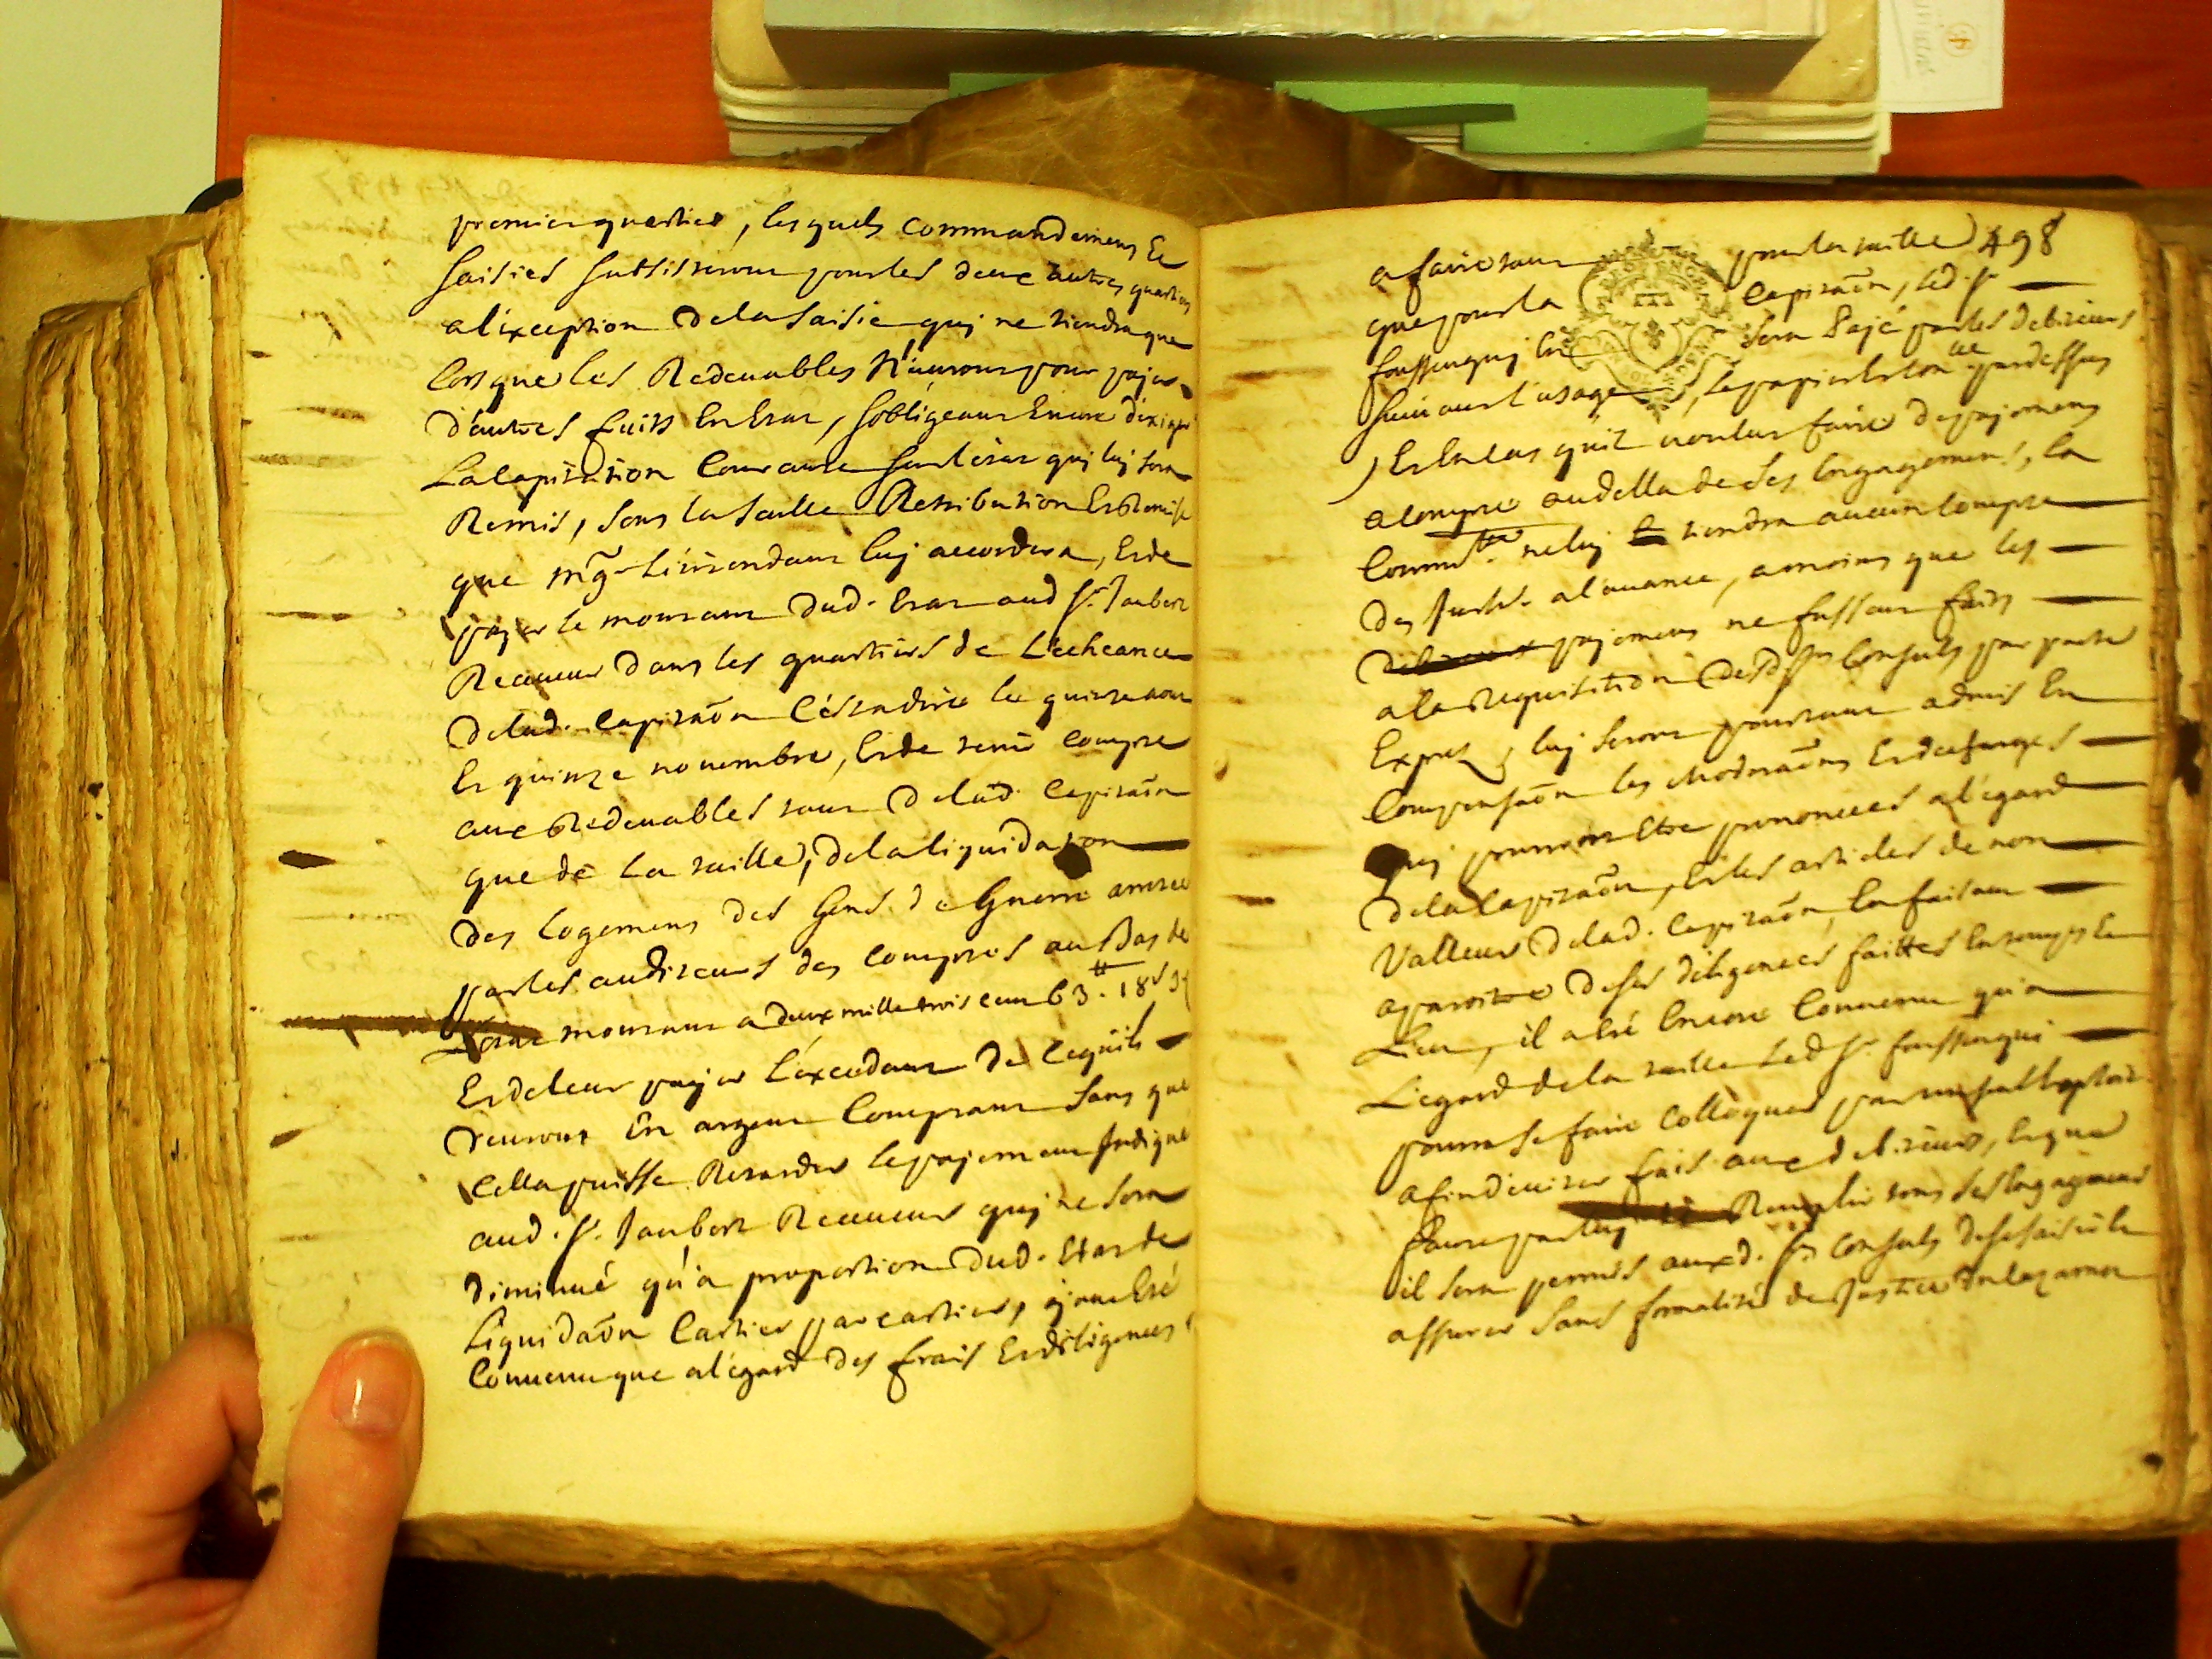 premier quartier, lesquels commandemens Et
saisies subsisteront pour les deux autres quartiers
a l'exception de la saisie quj ne tiendra que
lors que les Redeuables N'auront pour payer
d'autres fruits En Estat, s'obligeant Encore d'exiger
La Capitation Courante sur l'état quj luj sera
Remis, sous la seulle Retribution Et Remise
que mgr L'intendant luj accordera, Et de
payer le montant dud. Estat aud sr. Jaubert
Receueur dans les quartiers de L'echeance
de lad. capitaõn C'est a dire le quinze aout
Et quinze nouembre, Et de tenir compte
aux Redeuables tant de lad. capitaõn
que de La taille, de la liquidation
des logemens des Gens de Guerre arretée
par les auditeurs des comptes au Bas de
L'etat montant a deux mille trois cent 63. 18 s 9 d
Et de leur payer L'excedant De Ce quils
deuront En argent Comptant sans que
Cella puisse Retarder le payement Indiqué
aud. sr. Jaubert Receueur quj ne sera
diminué qu'a proportion dud. Etat de
Liquidaõn Cartier par cartier, ayant Eté
Conuenu que a l'egard des frais Et diligences
a faire tant pour la taille 498
que pour la Capitaõn, led. sr
sera Payé par les debiteurs
suiuant l'usage, le papier Et pardessus
Et En cas qu'il voulut faire de payemens
a compte au della de ses Engagemens, la
Comm.té ne luj tiendra aucun compte
des Jnter. a l'auance, a moins que les
payemens ne fussent faits
a la Requisition desd srs Consuls par pacte
Exprez, luj seront pourtant admis En
Compensaõn les Moderaõns Et decharges
quj pourront Etre prononcées a l'egard
de la Capitaõn, Et les articles de non
Valleur de lad. Capitaõn, En faisant
aparoitre de ses diligences faittes En temps Et
Lieu, il a Eté Encore Conuenu qu'a
L'egard de la taille Led sr.
pourra se faire Colloquer par un seul
afin d'euiter frais aux debiteurs, Et que
Faute par luj Remplir tous ses Engagemens
il sera permis auxd. srs Consuls de se saisir
assurer sans formalité de Justice